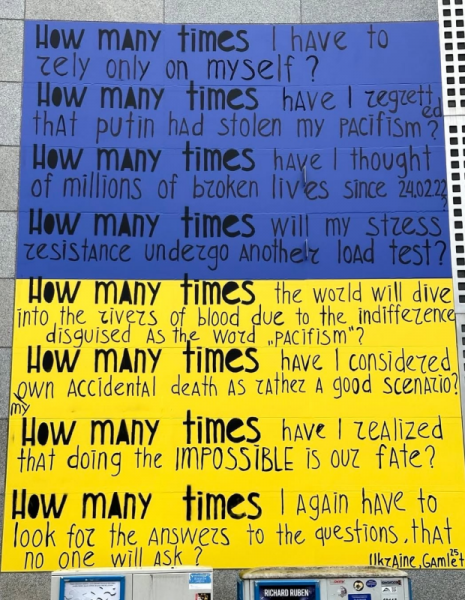 How many times I have to
rely only on myself?
How many times have I regretted
that putin had stolen my pacifism?
How many times have I thought
of millions of broken lives since 24.02.22
How many times will my stress
resistance undergo another load test?
How many times the world will dive
into the rivers of blood due to the indifference
disguised as the word „pacifism"?
How many times have I considered
my own accidental death as rather a good scenario?
How many times have I realized
that doing the IMPOSSIBLE is our fate?
How many times I again have to
look for the answers to the questions, that
no one will ask?
Ukraine, Gamlet 25
RICHARD RUBEN